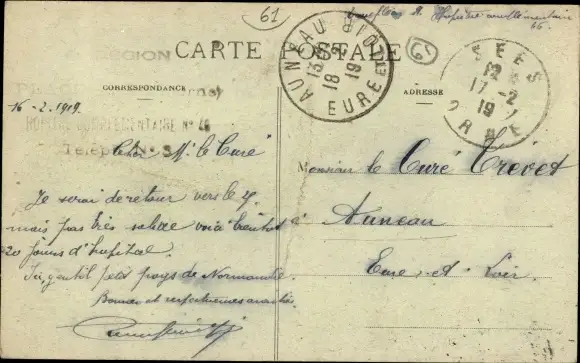 61
Hôpital complémentaire
46
CARTE POSTALE
61
RÉGION
AUNEAU
18 2
19
EURE ET
SEES
12
17 -2
19
ORNE
CORRESPONDANCE
ADRESSE
16-2-1919.
HOPITAL COMPLÉMENTAIRE N° 46
Télép
Cher Mr le Curé
Monsieur le Curé Trevet
Je serai de retour vers le
mais pas très valide voici bientôt
à Auneau
20 jours d'hôpital.
Eure-et-Loir
Ici, gentil petit pays de Normandie.
Bonnes et respectueuses amitiés